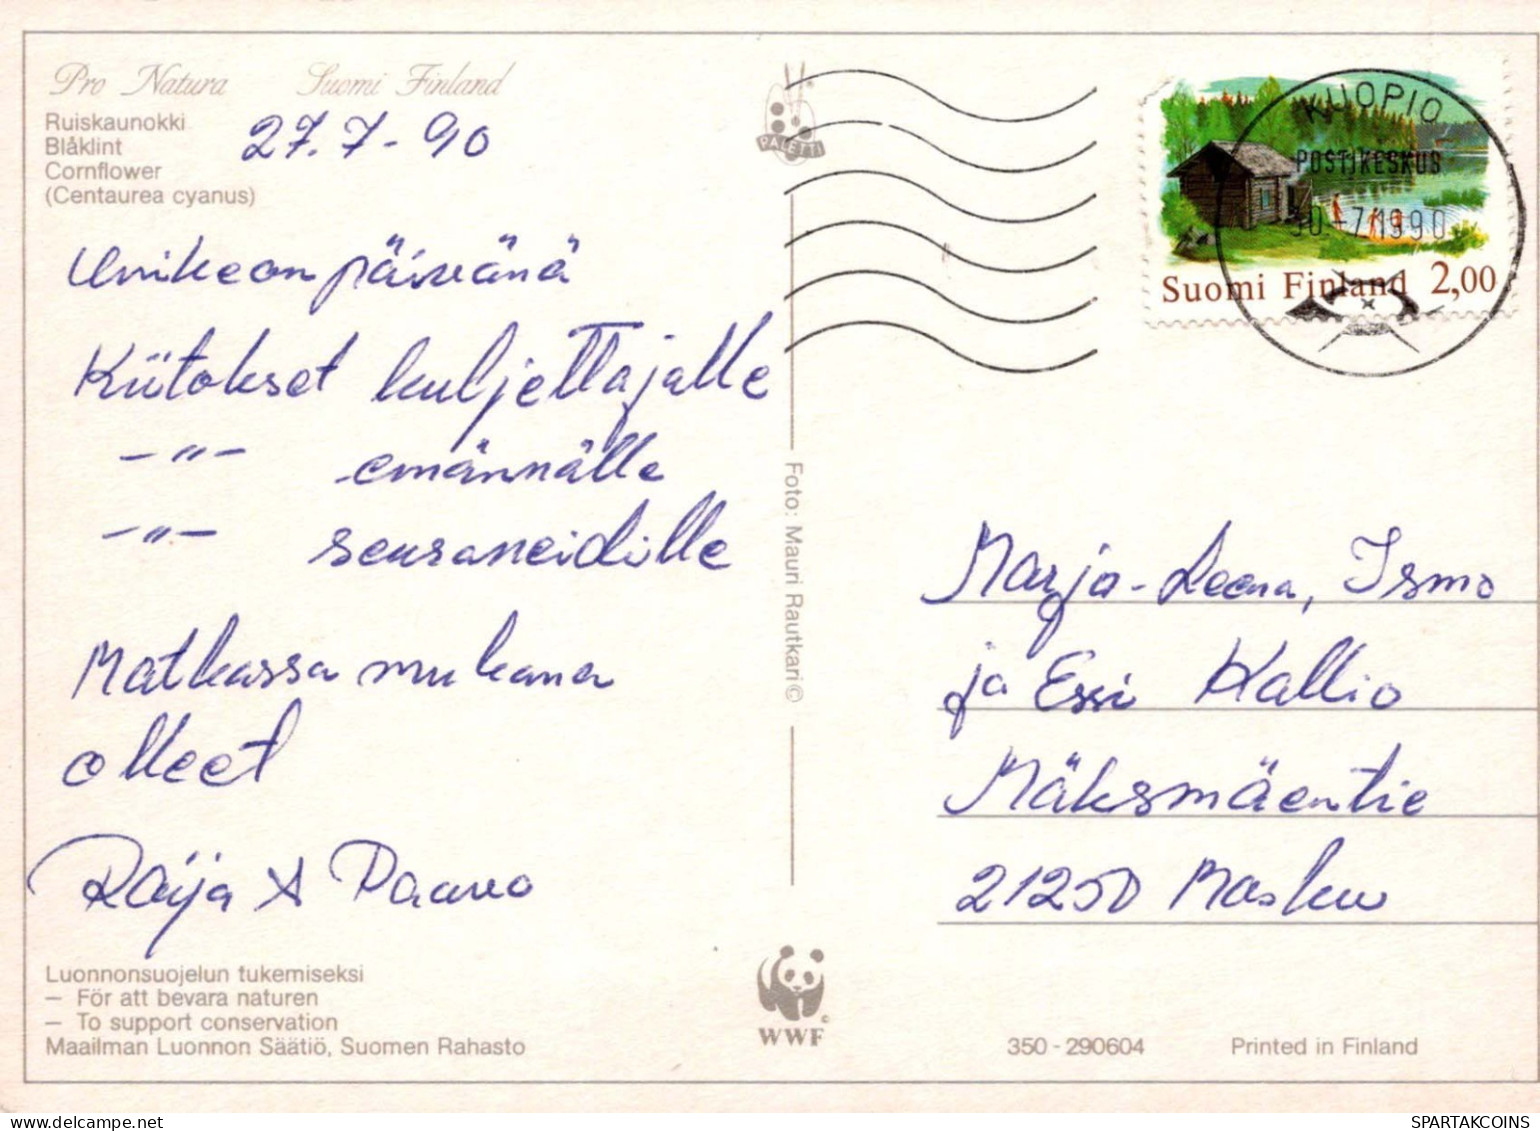 Pro Natura Suomi Finland
Ruiskaunokki
Blåklint
Cornflower
(Centaurea cyanus)
27.7-90
Unikeon päivänä
Kiitokset kuljettajalle
-"- emännälle
-"- seuraneidille
Matkassa mukana
olleet
Raija & Paavo
Luonnonsuojelun tukemiseksi
– För att bevara naturen
– To support conservation
Maailman Luonnon Säätiö, Suomen Rahasto
PALETTI
Foto: Mauri Rautkari ©
WWF
KUOPIO
POSTIKESKUS
30.-7.1990
Suomi Finland 2,00
Marja-Leena, Ismo
ja Essi Kallio
Mäksmäentie
21250 Masku
350-290604 Printed in Finland
SPARTAKCOINS